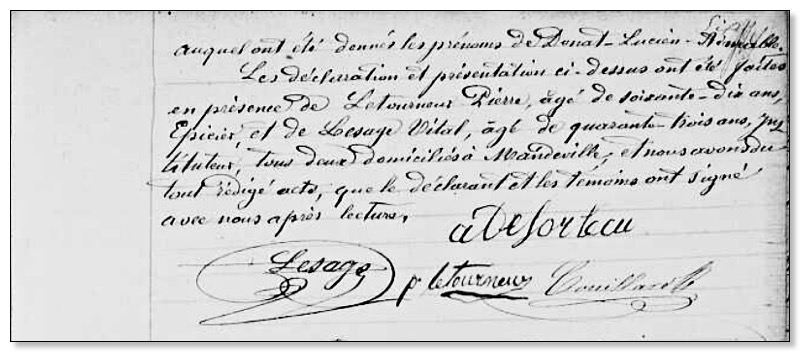 auquel ont été donnés les prénoms de Donat-Lucien-Aimable.
Les déclaration et présentation ci-dessus ont été faites
en présence de Letourneur Pierre, âgé de soixante-dix ans,
Epicier, et de Lesage Vital, âgé de quarante-trois ans, Ins
tituteur, tous deux domiciliés à Mandeville, et nous avons du
tout rédigé acte, que le déclarant et les témoins ont signé
avec nous après lecture.
a Deforteau
Lesage
p letourneur